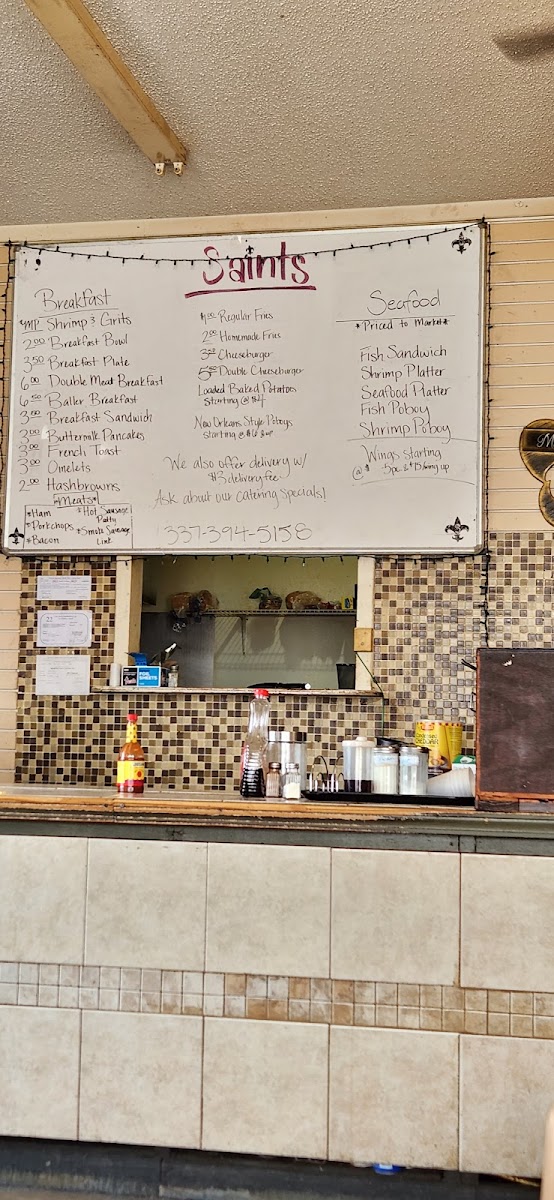 Saints
Breakfast
*MP Shrimp & Grits
2.00 Breakfast Bowl
3.50 Breakfast Plate
6.00 Double Meat Breakfast
6.50 Baller Breakfast
3.00 Breakfast Sandwich
3.00 Buttermilk Pancakes
3.00 French Toast
3.00 Omelets
2.00 Hashbrowns
*Meats*
*Ham
*Porkchops
*Bacon
*Hot Sausage
Patty
*Smoke Sausage
Link
1.00 Regular Fries
2.00 Homemade Fries
Cheeseburger
Double Cheeseburger
Loaded Baked Potatoes
Starting @ $4
New Orleans Style Poboys
starting @ $6 & up
We also offer delivery w/
$3 delivery fee
Ask about our Catering Specials!
337-394-5158
Seafood
*Priced to Market*
Fish Sandwich
Shrimp Platter
Seafood Platter
Fish Poboy
Shrimp Poboy
Wings starting
@ $ 5pc